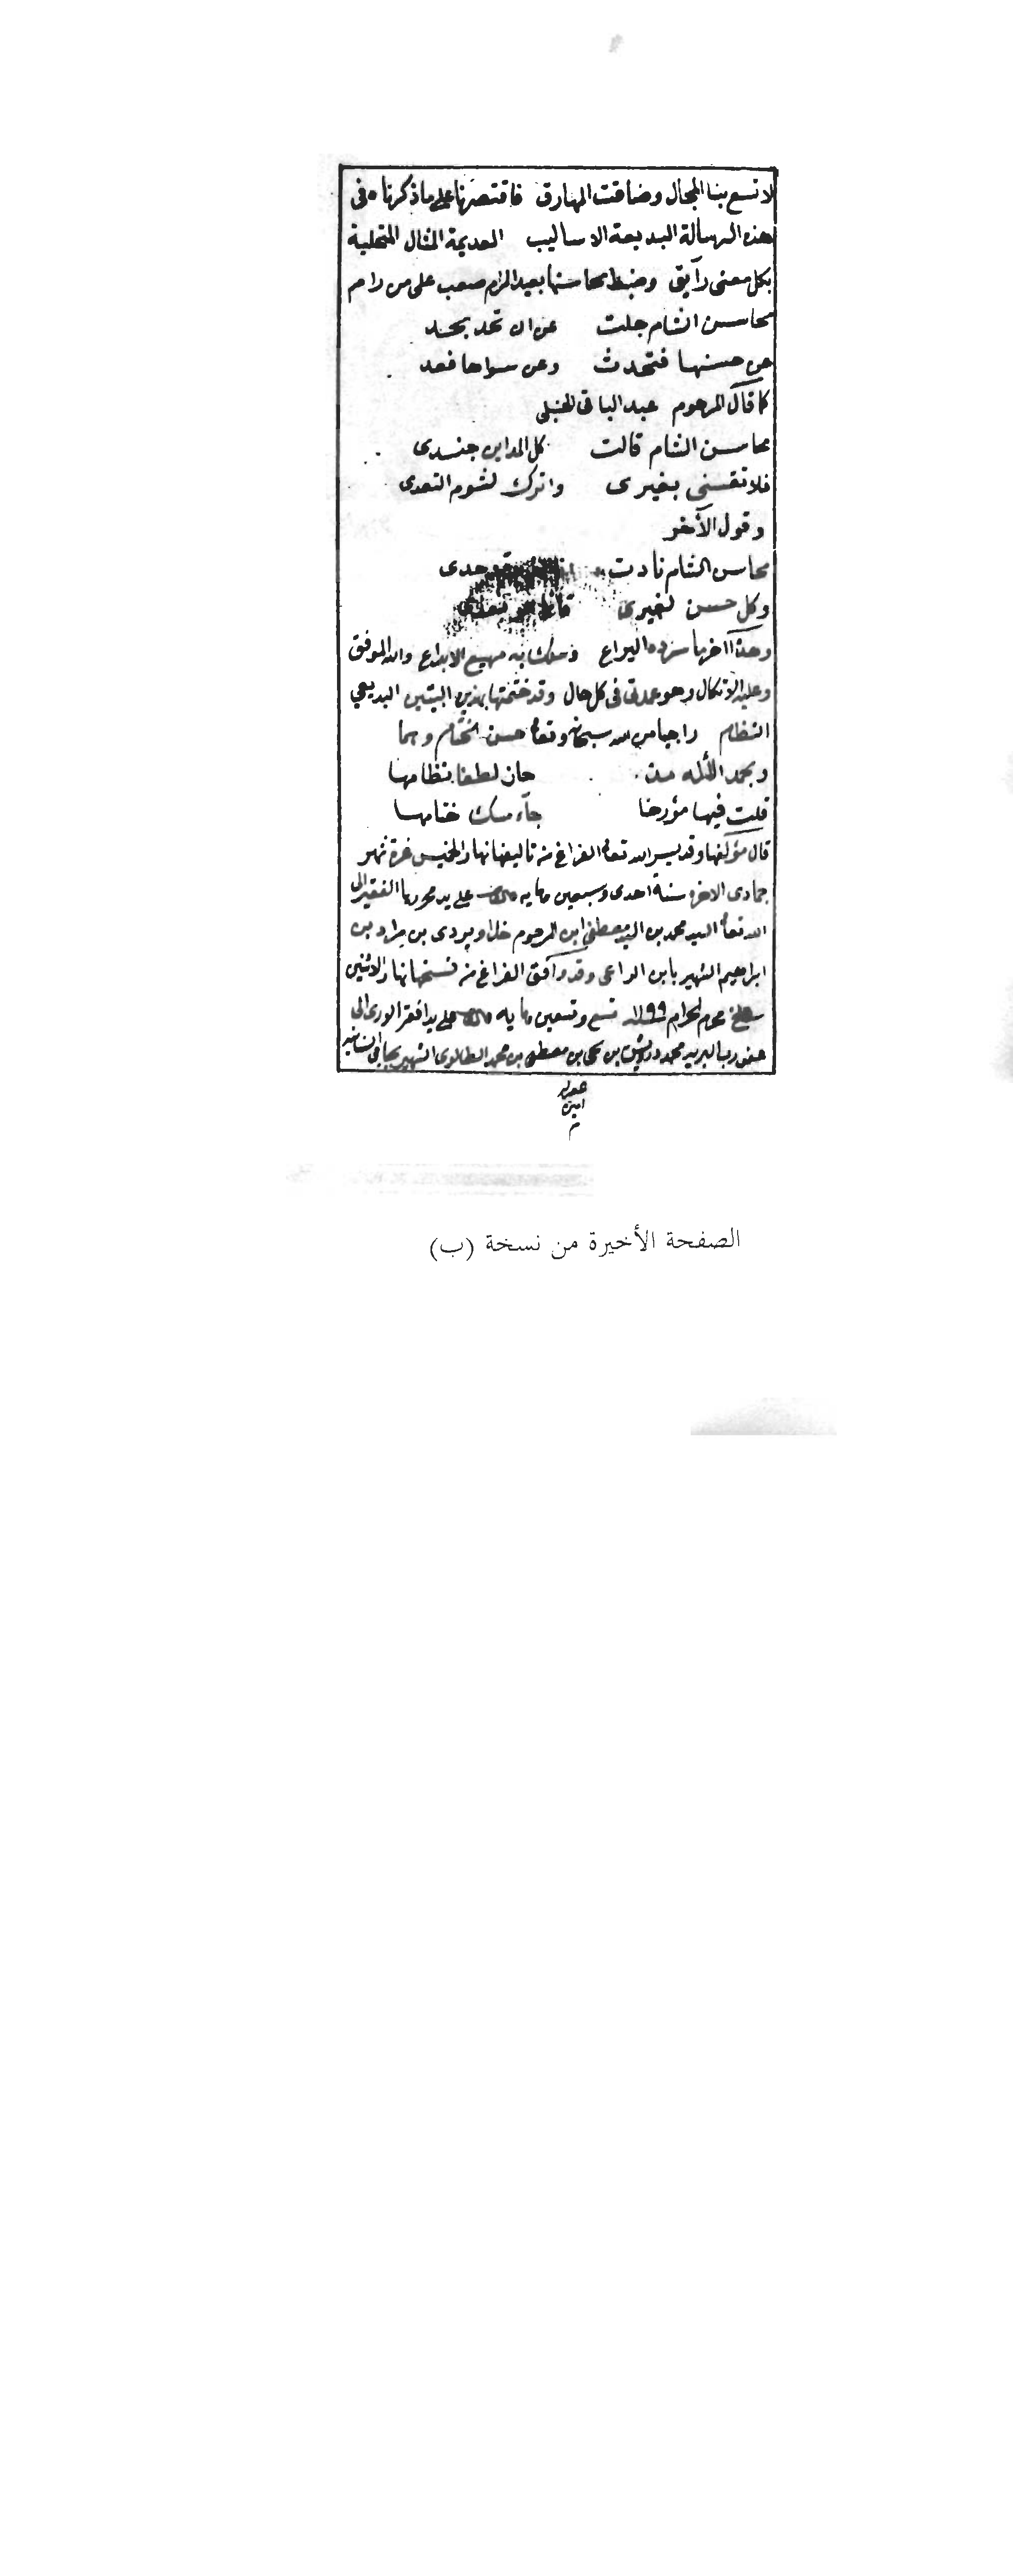 لا تسع بنا المجال وضاقت المهارق فاقتصرنا على ما ذكرناه فى
هذه الرسالة البديعة الاساليب العديمة المثال المتحلية
بكل معنى رآيق وضبط محاسنها بعيد المرام صعب على من رام
محاسن الشام جلت عن ان تحد بحد
عن حسنها فتحدث وعن سواها فعد
كما قال المرحوم عبد الباقى الحنبلى
محاسن الشام قالت كل المداين جندى
فلا تقسنى بغيرى واترك لشوم التعدى
وقول الآخر
محاسن الشام نادت وحدى
وكل حسن لغيرى
وهذا آخر ما سرده اليراع وسلك به مهيع الابداع والله الموفق
وعليه الاتكال وهو عمدتى فى كل حال وقد ختمتها بهذين البيتين البديعي
النظام راجيا من الله سبحانه وتعا حسن الختام وهما
وبحمد الاله مذ حان لطفا نظامها
قلت فيها مؤرخا جآء مسك ختامها
قال مؤلفها وقد يسر الله تعا الفراغ من تاليفها نهار الخميس غرة شهر
جمادى الاخره سنة احدى وسبعين ومايه على يد محررها الفقير الى
الله تعا السيد محمد بن السيد مصطفى ابن المرحوم خداويردى بن مراد بن
ابراهيم الشهير بابن الراعى وقد وافق الفراغ من نسخها نهار الاثنين
سلخ محرم الحرام ١١٩٩ تسع وتسعين ومايه على يد افقر الورى الى
عفو رب البريه محمد درويش بن يحى بن مصطفى بن محمد الطالوى الشهير
امين
م
الصفحة الأخيرة من نسخة (ب)